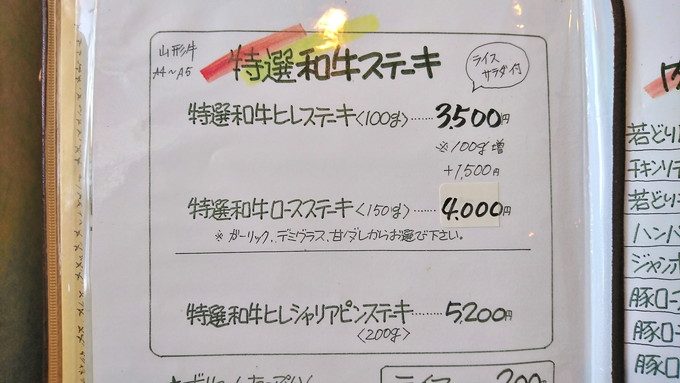 山形牛
A4〜A5
特選和牛ステーキ
ライス
サラダ付
特選和牛ヒレステーキ〈100g〉……3,500円
※100g増
+1,500円
特選和牛ロースステーキ〈150g〉……4,000円
※ガーリック、デミグラス、甘ダレからお選び下さい。
特選和牛ヒレシャリアピンステーキ……5,200円
〈200g〉
若どり
チキンソテ
若どり
ハンバ
ジャンボ
豚ロース
豚ロ
豚ロ
ライス